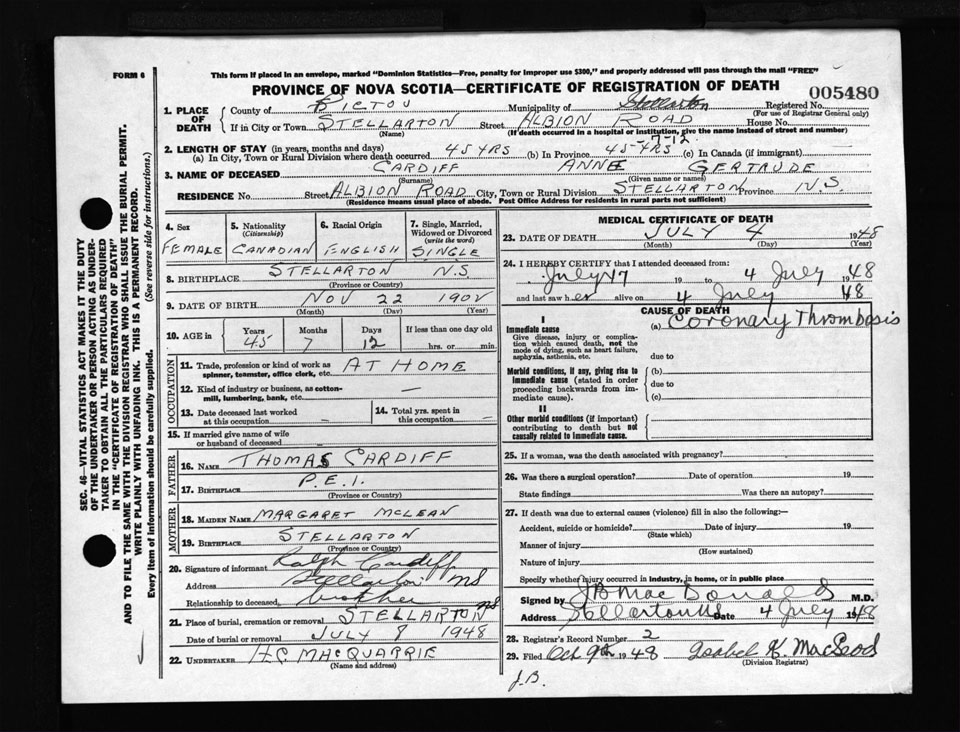 FORM 6
This form if placed in an envelope, marked "Dominion Statistics—Free, penalty for improper use $300," and properly addressed will pass through the mail "FREE"
PROVINCE OF NOVA SCOTIA—CERTIFICATE OF REGISTRATION OF DEATH
005480
1. PLACE OF DEATH { County of PICTOU Municipality of Stellarton Registered No.
(For use of Registrar General only)
If in City or Town STELLARTON Street ALBION ROAD House No.
(Name) (If death occurred in a hospital or institution, give the name instead of street and number)
2. LENGTH OF STAY (in years, months and days) -7-12
(a) In City, Town or Rural Division where death occurred 45 YRS (b) In Province 45-YRS (c) In Canada (if immigrant)
3. NAME OF DECEASED CARDIFF ANNE GERTRUDE
(Surname) (Given name or names)
RESIDENCE No. Street ALBION ROAD City, Town or Rural Division STELLARTON Province N.S.
(Residence means usual place of abode. Post Office Address for residents in rural parts not sufficient)
4. Sex FEMALE
5. Nationality (Citizenship) CANADIAN
6. Racial Origin ENGLISH
7. Single, Married, Widowed or Divorced (write the word) SINGLE
8. BIRTHPLACE STELLARTON N.S.
(Province or Country)
9. DATE OF BIRTH NOV 22 1902
(Month) (Day) (Year)
10. AGE in { Years 45 Months 7 Days 12 If less than one day old hrs. or min.
OCCUPATION
11. Trade, profession or kind of work as spinner, teamster, office clerk, etc. AT HOME
12. Kind of industry or business, as cotton-mill, lumbering, bank, etc. —
13. Date deceased last worked at this occupation —
14. Total yrs. spent in this occupation —
15. If married give name of wife or husband of deceased —
FATHER
16. NAME THOMAS CARDIFF
17. BIRTHPLACE P.E.I.
(Province or Country)
MOTHER
18. MAIDEN NAME MARGARET McLEAN
19. BIRTHPLACE STELLARTON
(Province or Country)
20. Signature of informant Ralph Cardiff
Address Stellarton NS
Relationship to deceased brother
21. Place of burial, cremation or removal STELLARTON NS
Date of burial or removal JULY 8 1948
22. UNDERTAKER H.C. MACQUARRIE
(Name and address)
MEDICAL CERTIFICATE OF DEATH
23. DATE OF DEATH JULY 4 1948
(Month) (Day) (Year)
24. I HEREBY CERTIFY that I attended deceased from:
July 47 19 to 4 July 1948
and last saw her alive on 4 July 48
CAUSE OF DEATH
I
Immediate cause
Give disease, injury or complication which caused death, not the mode of dying, such as heart failure, asphyxia, asthenia, etc.
(a) Coronary Thrombosis
due to
Morbid conditions, if any, giving rise to immediate cause (stated in order proceeding backwards from immediate cause).
(b)
due to
(c)
II
Other morbid conditions (if important) contributing to death but not causally related to immediate cause.
25. If a woman, was the death associated with pregnancy?
26. Was there a surgical operation? Date of operation 19
State findings Was there an autopsy?
27. If death was due to external causes (violence) fill in also the following:—
Accident, suicide or homicide? Date of injury 19
(State which)
Manner of injury
(How sustained)
Nature of injury
Specify whether injury occurred in industry, in home, or in public place
Signed by JB MacDonald M.D.
Address Stellarton NS Date 4 July 1948
28. Registrar's Record Number 2
29. Filed Oct 9th 1948 Isabel K. MacLeod
(Division Registrar)
J.B.
SEC. 46—VITAL STATISTICS ACT MAKES IT THE DUTY
OF THE UNDERTAKER OR PERSON ACTING AS UNDER-
TAKER TO OBTAIN ALL THE PARTICULARS REQUIRED
IN THE "CERTIFICATE OF REGISTRATION OF DEATH"
AND TO FILE THE SAME WITH THE DIVISION REGISTRAR WHO SHALL ISSUE THE BURIAL PERMIT.
WRITE PLAINLY WITH UNFADING INK. THIS IS A PERMANENT RECORD.
Every item of information should be carefully supplied. (See reverse side for instructions.)